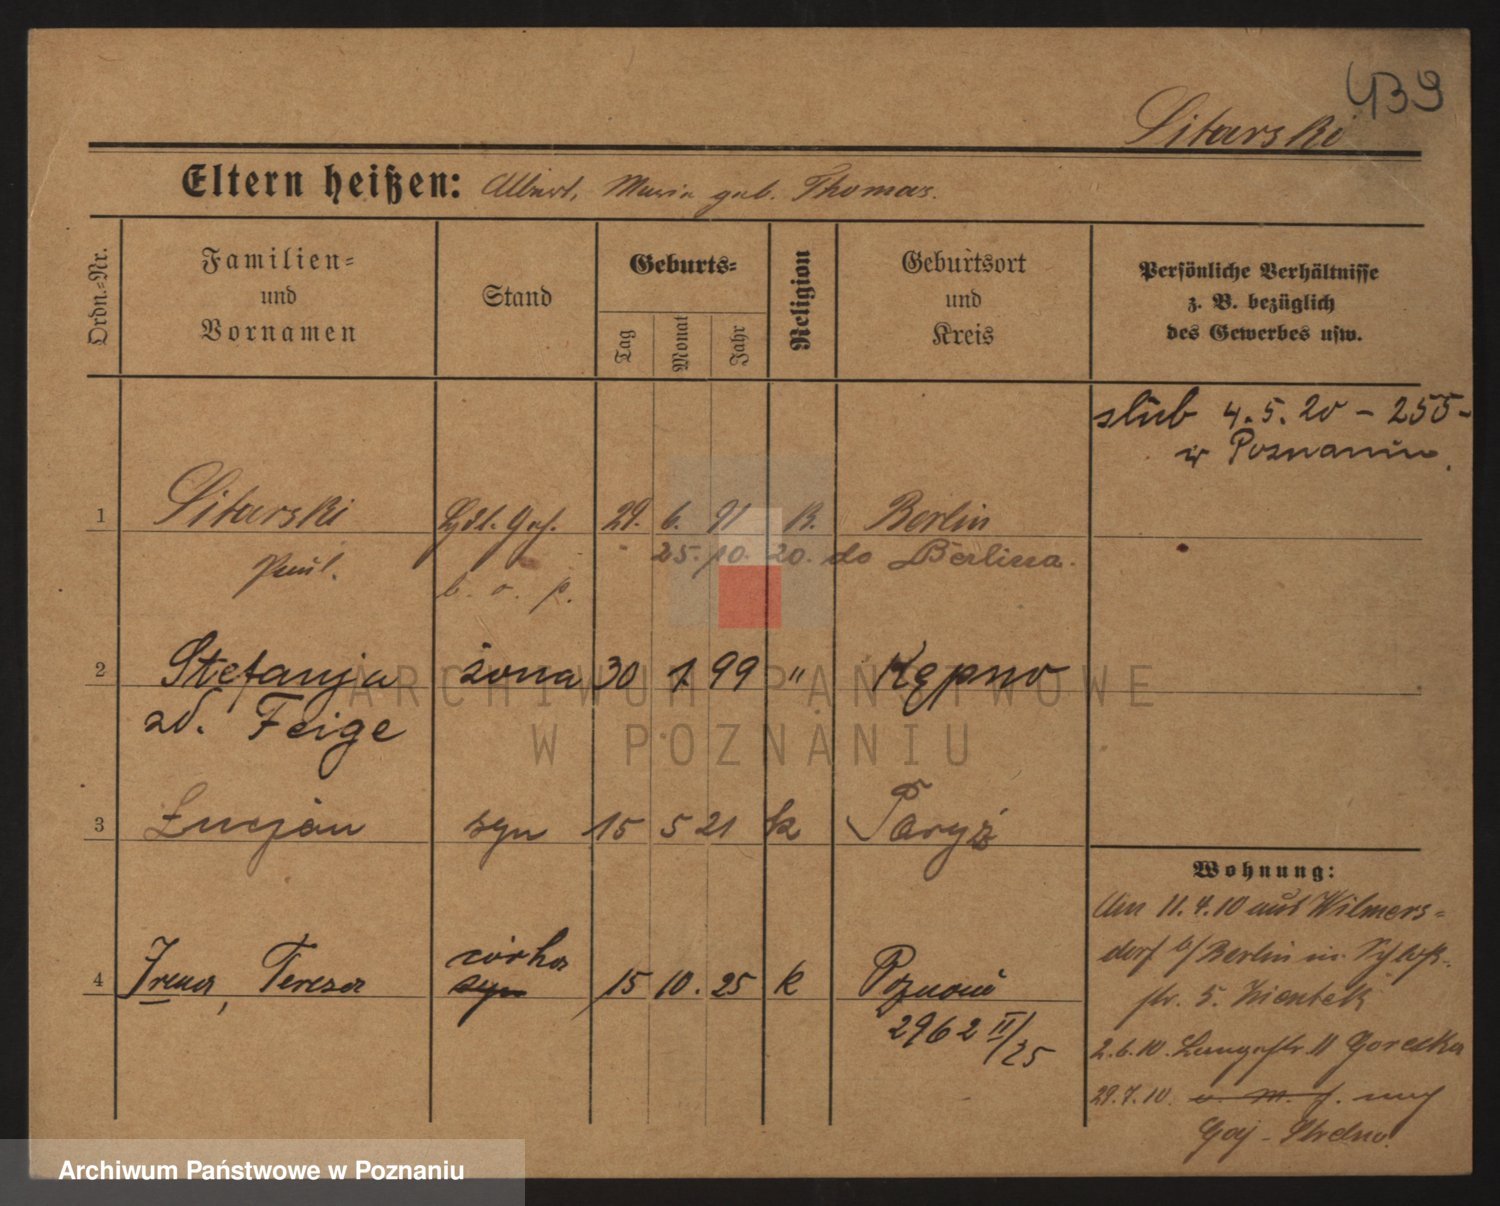 439
Sitarski
Eltern heißen: Albert, Maria geb. Thomas.
Ordn.-Nr.
Familien-
und
Vornamen
Stand
Geburts-
Tag
Monat
Jahr
Religion
Geburtsort
und
Kreis
Persönliche Verhältnisse
z. B. bezüglich
des Gewerbes usw.
slub 4.5.20 - 255-
w Poznaniu.
1 Sitarski 29. 6. 91 K. Berlin
Paul. 25. 10. 20. do Berlina.
b. o. p.
2 Stefanja żona 30 1 99 " Kępno
zd. Feige
3 Łucjan syn 15 5 21 k Paryż
4 Irena, Teresa córka syn 15 10. 25 k Poznań
2962 II/25
Wohnung:
Am 11.4.10 aus Wilmers-
dorf b/Berlin n. Schloß-
str. 5. Zientek
2.6.10. Langestr. 11 Gorecka
29.7.10. nach
Gaj - Strelno.
ARCHIWUM PAŃSTWOWE
W POZNANIU
Archiwum Państwowe w Poznaniu